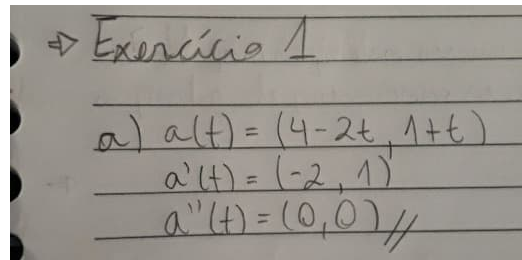 ⇒ Exercício 1
a) a(t) = (4-2t, 1+t)
a'(t) = (-2, 1)
a''(t) = (0,0)//